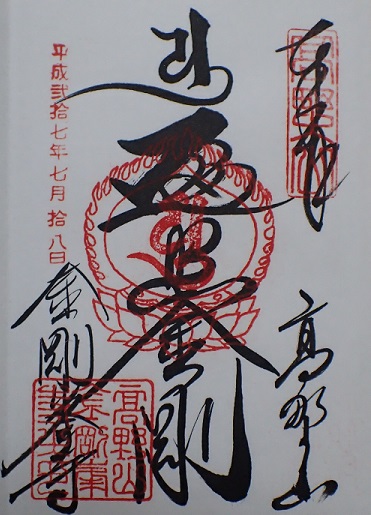 奉拝
高野山
遍照金剛
平成弐拾七年七月拾八日
金剛峯寺
高野山
金剛峯